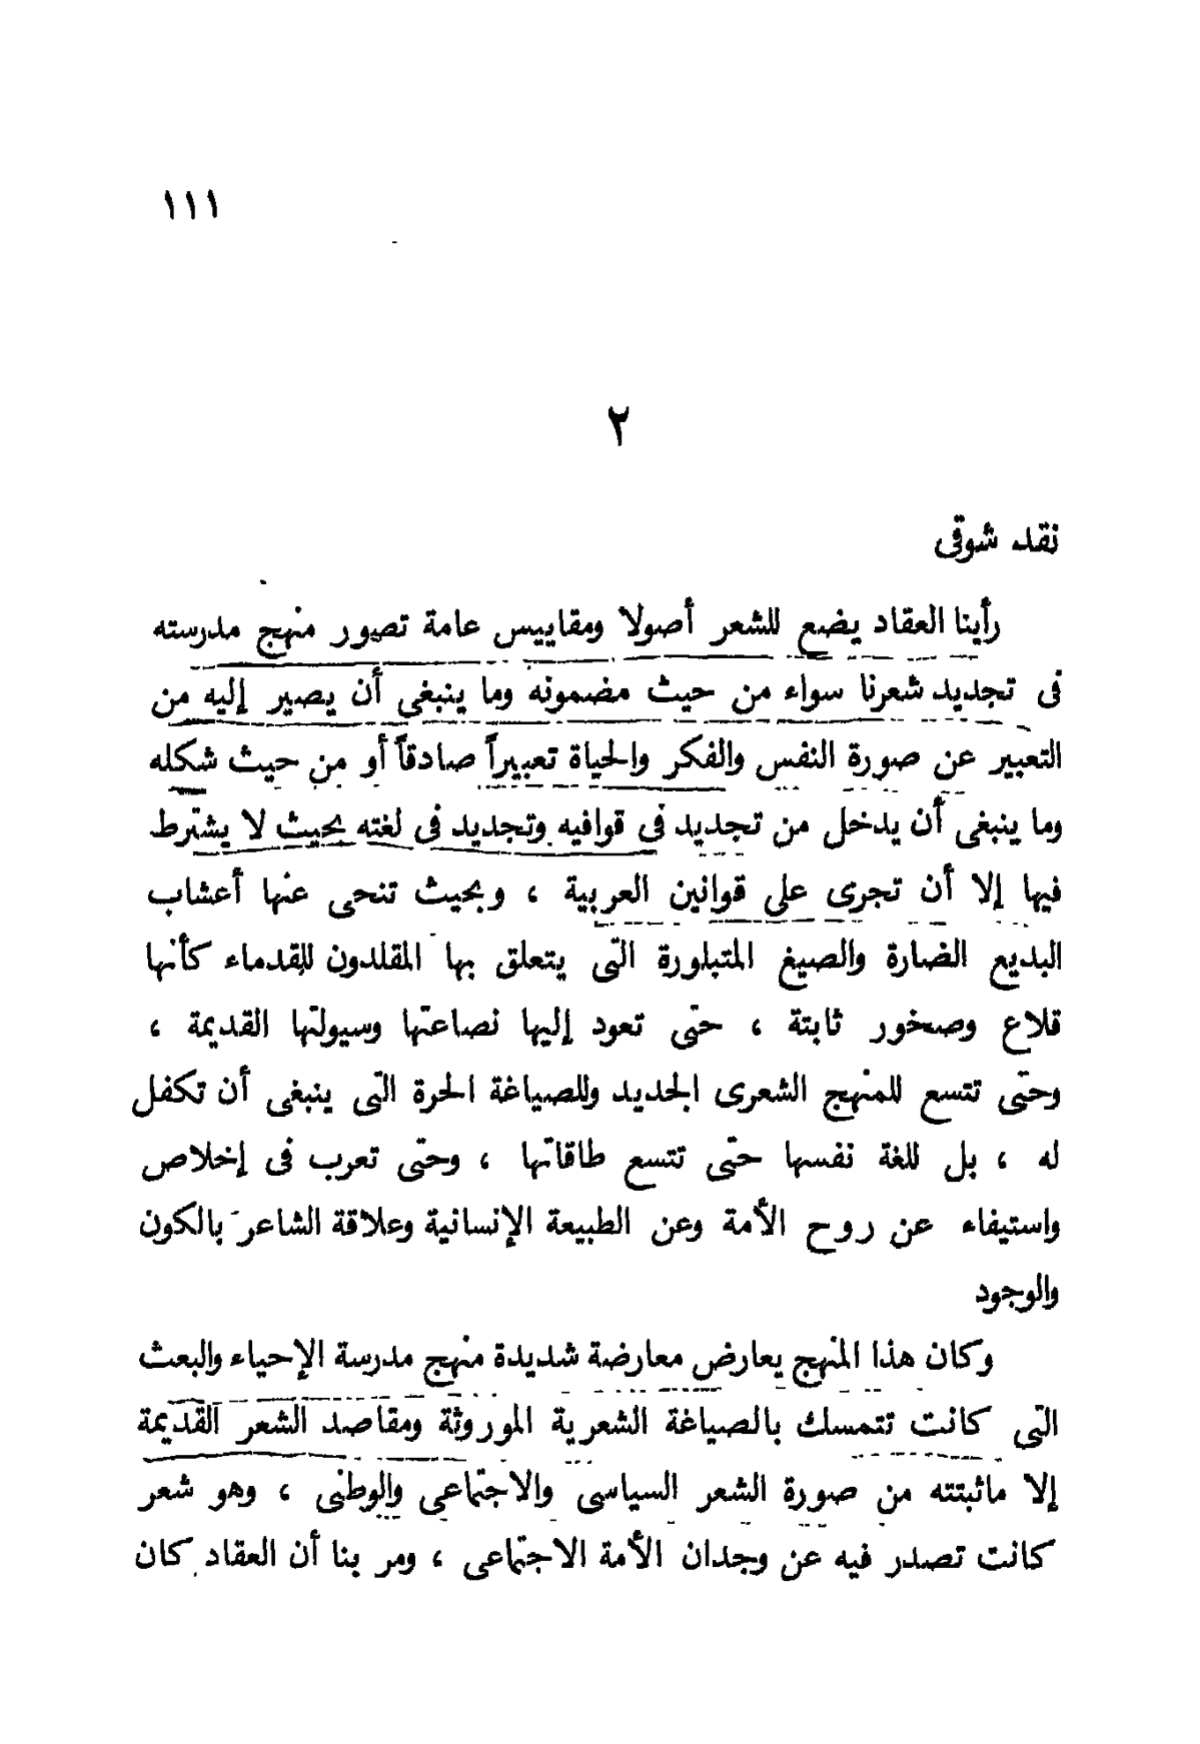 ١١١
٢
نقد شوقى
رأينا العقاد يضع للشعر أصولا ومقاييس عامة تصور منهج مدرسته
فى تجديد شعرنا سواء من حيث مضمونه وما ينبغى أن يصير إليه من
التعبير عن صورة النفس والفكر والحياة تعبيراً صادقاً أو من حيث شكله
وما ينبغى أن يدخل من تجديد فى قوافيه وتجديد فى لغته بحيث لا يشترط
فيها إلا أن تجرى على قوانين العربية ، وبحيث تنحى عنها أعشاب
البديع الضارة والصيغ المتبلورة التى يتعلق بها المقلدون للقدماء كأنها
قلاع وصخور ثابتة ، حتى تعود إليها نصاعتها وسيولتها القديمة ،
وحتى تتسع للمنهج الشعرى الجديد وللصياغة الحرة التى ينبغى أن تكفل
له ، بل للغة نفسها حتى تتسع طاقاتها ، وحتى تعرب فى إخلاص
واستيفاء عن روح الأمة وعن الطبيعة الإنسانية وعلاقة الشاعر بالكون
والوجود
وكان هذا المنهج يعارض معارضة شديدة منهج مدرسة الإحياء والبعث
التى كانت تتمسك بالصياغة الشعرية الموروثة ومقاصد الشعر القديمة
إلا ماثبتته من صورة الشعر السياسى والاجتماعى والوطنى ، وهو شعر
كانت تصدر فيه عن وجدان الأمة الاجتماعى ، ومر بنا أن العقاد كان